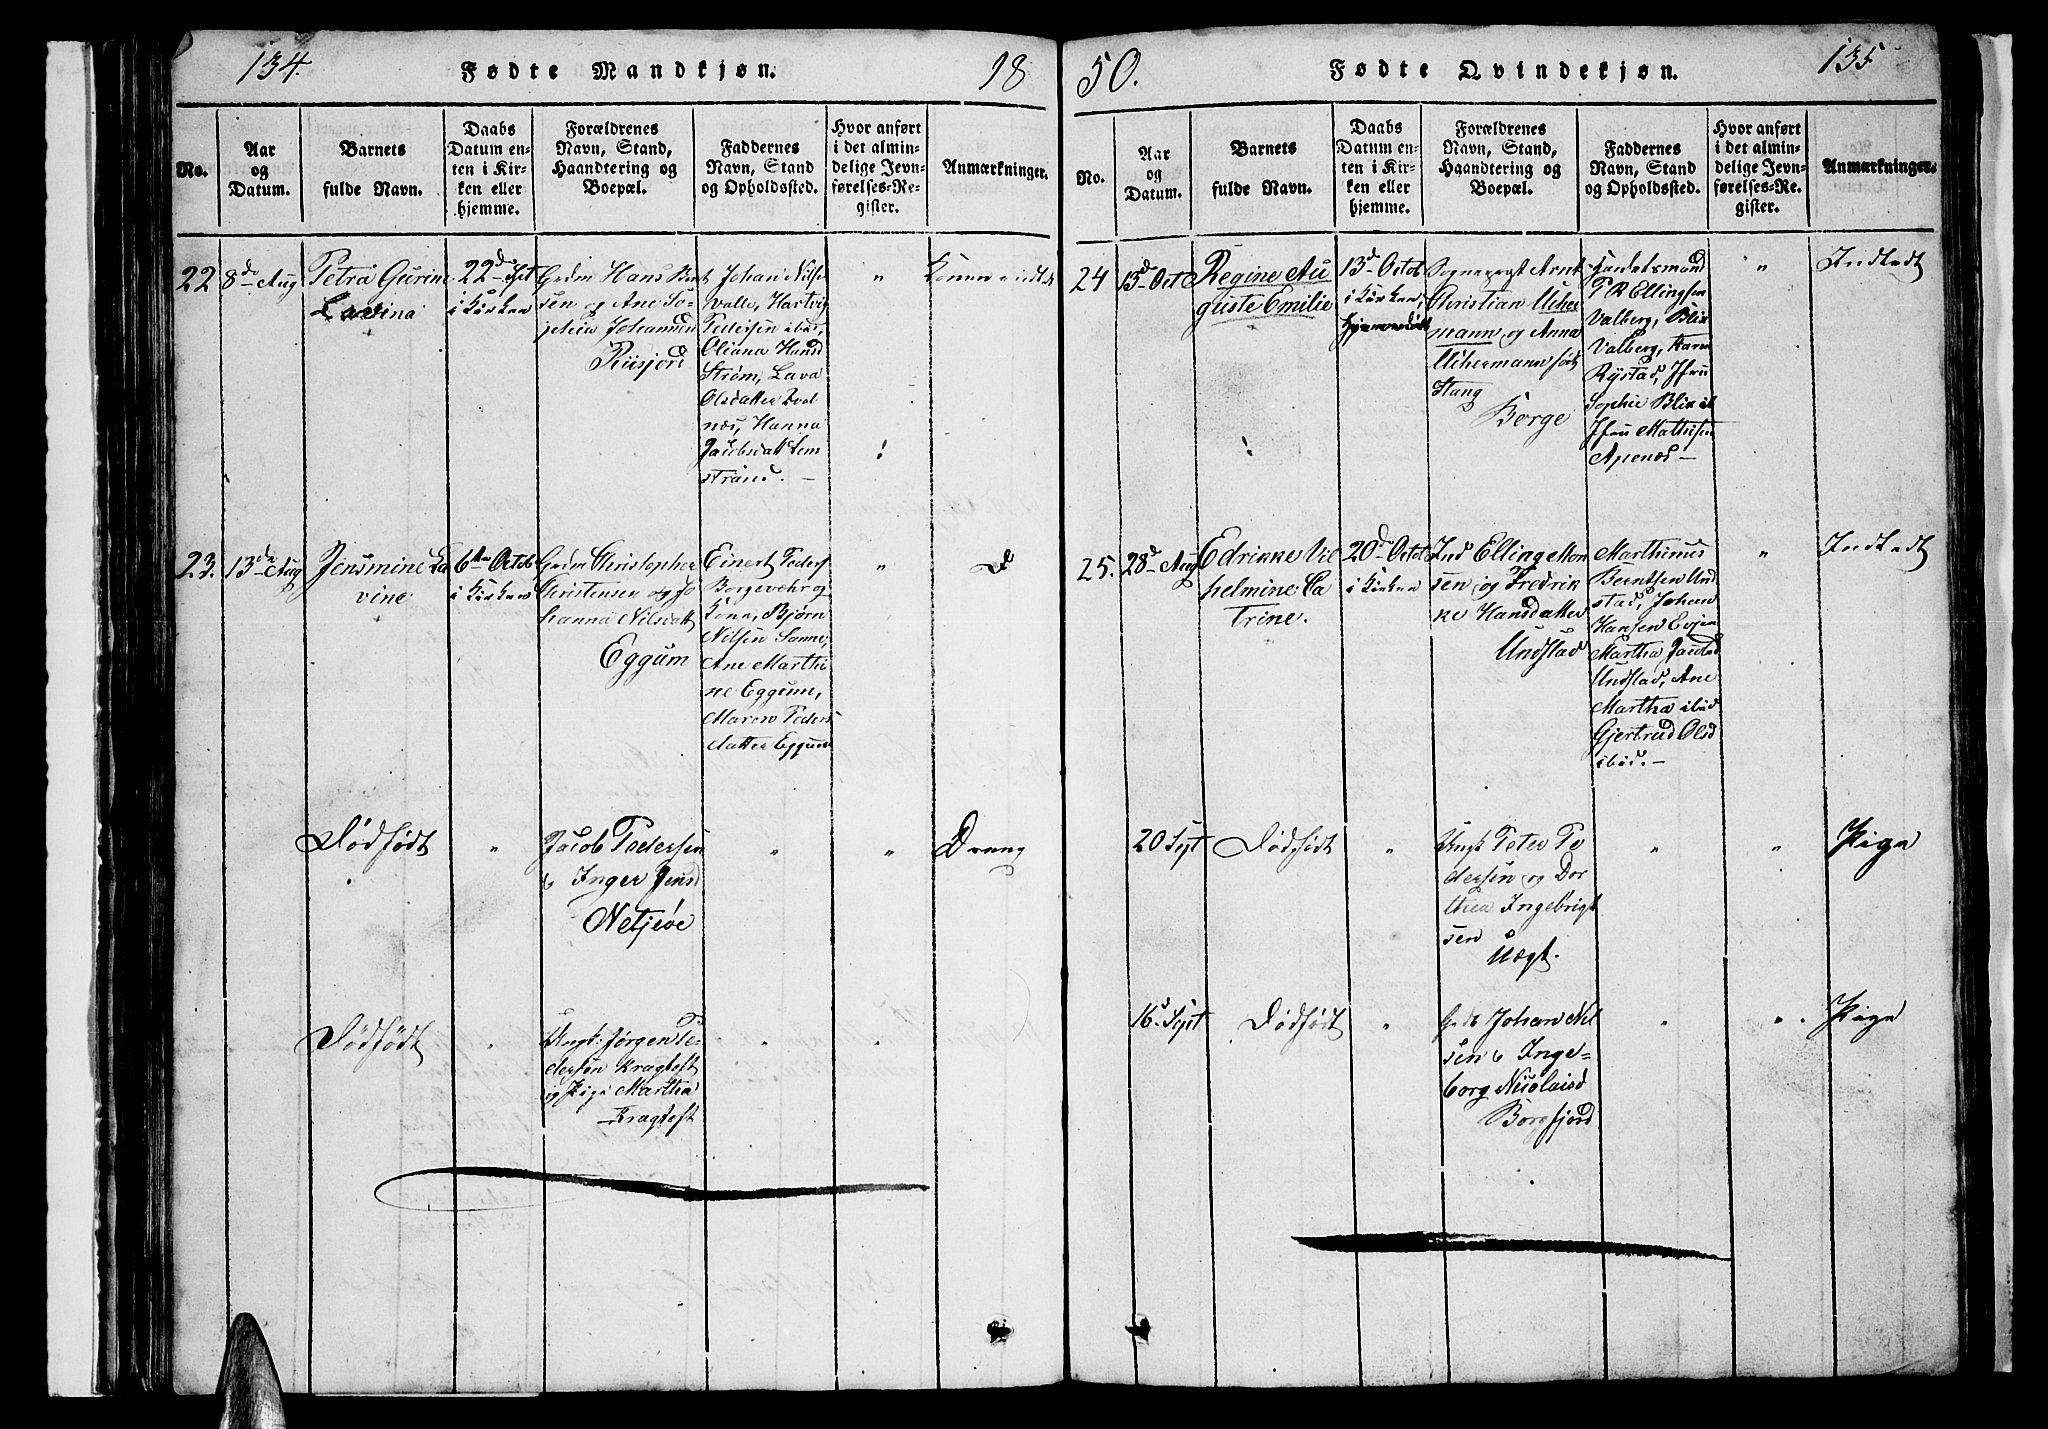 134.
Fødte Mandkjøn.
18
No.
Aar
og
Datum.
Barnets
fulde Navn.
Daabs
Datum en-
ten i Kir-
ken eller
hjemme.
Forældrenes
Navn, Stand,
Haandtering og
Boepæl.
Faddernes
Navn, Stand
og Opholdssted.
Hvor anført
i det almin-
delige Jevn-
førelses-Re-
gister.
Anmærkninger.
22
8de Aug
Petra Gurine
Lavina
22d Spt
i Kirken
Hans Bernt
sen og Ane So-
phia Johannesd
Riisjord
Johan Nilse
Valle, Hartvig
Pedersen ibid,
Oliana Hansd
Strøm, Lava
Olsdatter
Hanna
Jacobsdatt Lim
strand. —
"
23.
13de Aug
Jensmine La
vine
6te Octob
i Kirken
Christopher
Christensen og Jo
hanna Nilsdatt
Eggum
Einert Peders
Borgevær og
Kone, Bjørn
Nilsen Sanne,
Ane Marthi
ne Eggum,
Maren Peders
datter Eggum
"
D
Dødfødt
"
Jacob Pedersen
& Inger Jensd
Netjeøe
"
"
Dreng
Dødfødt
"
Ungk: Jørgen Pe-
dersen Kragtoft
og Pige Martha
Kragtoft
"
"
50.
Fødte Qvindekjøn.
135
No.
Aar
og
Datum.
Barnets
fulde Navn.
Daabs
Datum en-
ten i Kir-
ken eller
hjemme.
Forældrenes
Navn, Stand,
Haandtering og
Boepæl.
Faddernes
Navn, Stand
og Opholdssted.
Hvor anført
i det almin-
delige Jevn-
førelses-Re-
gister.
Anmærkninger.
24
13d Oct
Regine Au
guste Emilie
13d Octob
i Kirken,
Hjemmedøbt
Sognepræst Arnt
Christian Ucher
mann og Anna
Uchermann født
Stang
Borge
Handelsmand
P R Ellingsen
Valberg, Blix
Valberg, Karen
Rystad, Jfru
Sophie Blix ib
Jfru Mathisen
Apenæs —
"
Indtedt
25.
28d Aug
Edrikke Vil
helmine Ca
trine.
20d Octob
i Kirken
Ind Elling Mon
sen og Fredrik
ke Hansdatter
Undstad
Marthinus
Berntsen Und
stad, Johan
Hansen Evjen
Martha Jacobsd
Undstad, Ane
Martha ibid
Gjertrud Olsd
ibid. —
"
Indtedt
20 Sept
Dødfødt
"
Ungk Peter Pe
dersen og Dor
thea Ingebrigt
sen
Uægt.
"
"
Pige
16 Sept
Dødfødt
"
Johan Nil
sen & Inge-
borg Nicolaisd
Borgfjord
"
"
Pige